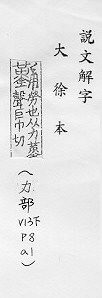 説文解字
大徐本
勞也从力堇
聲巨巾切
(力部
V13下
P8
a1)